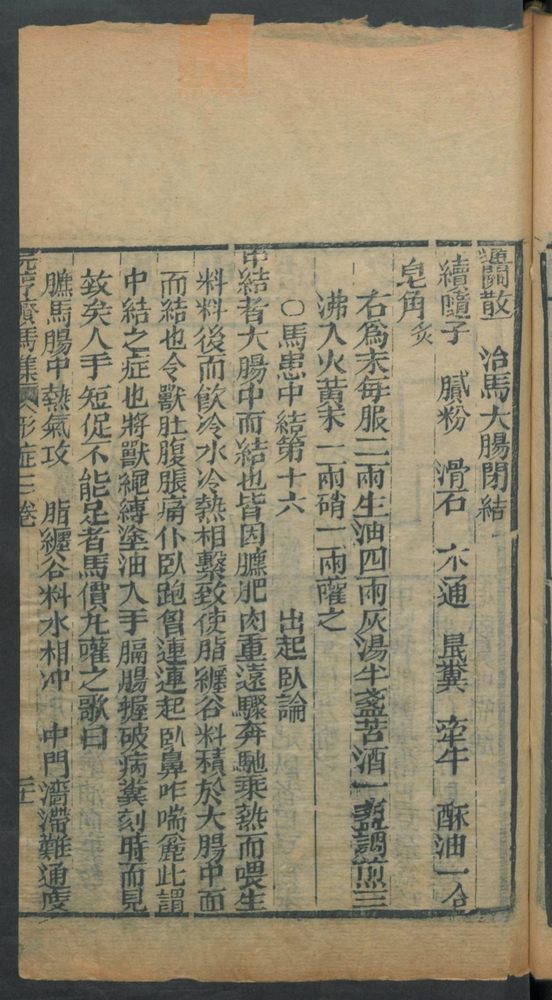 通關散　治馬大腸閉結
續隨子　膩粉　滑石　木通　鼠糞　牽牛　酥油一合
皂角炙
右爲末每服二兩生油四兩灰湯半盞苦酒一盞調煎三
沸入火黃末一兩硝一兩灌之
○馬患中結第十六　出起臥論
中結者大腸中而結也皆因臕肥肉重遠驟奔馳乘熱而喂生
料料後而飮冷水冷熱相擊致使脂纒谷料積於大腸中而
而結也令獸肚腹脹痛仆臥跑胷連連起臥鼻咋喘麄此謂
中結之症也將獸繩縛塗油入手膈腸握破病糞刻時而見
效矣人手短促不能足者馬價丸灌之歌曰
臕馬腸中熱氣攻　脂纒谷料水相冲　中門濇滯難通度
元亨療馬集　形症三卷　二十